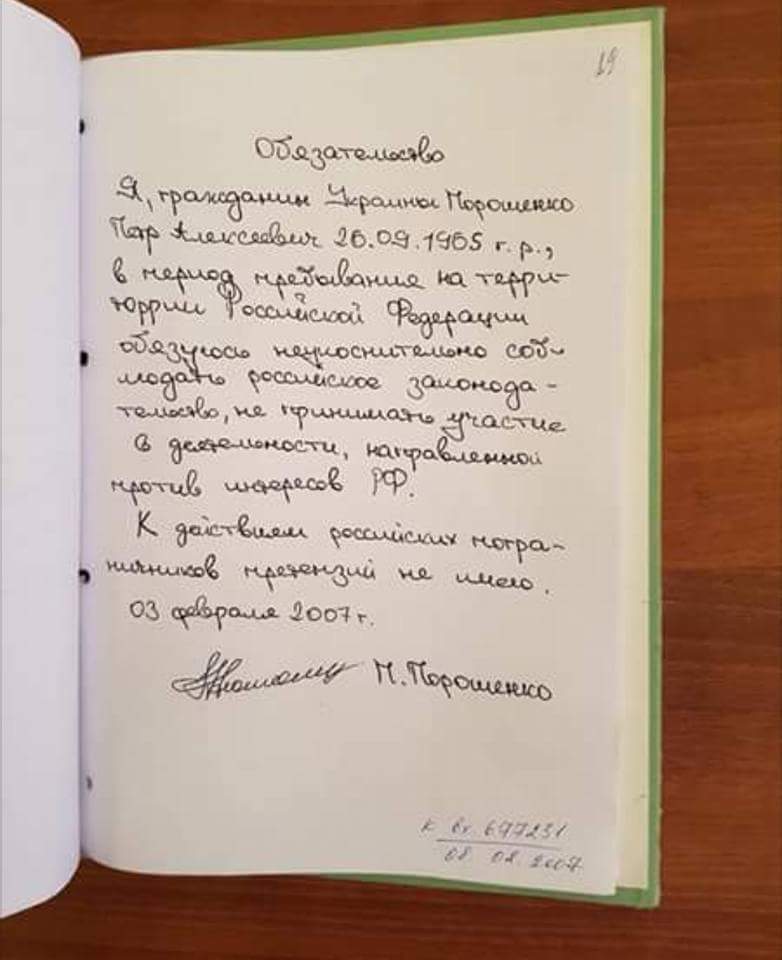 19
Обязательство
Я, гражданин Украины Порошенко
Петр Алексеевич 26.09.1965 г.р.,
в период пребывания на терри-
торрии Российской Федерации
обязуюсь неукоснительно соб-
людать российское законода-
тельство, не принимать участие
в деятельности, направленной
против интересов РФ.
К действием российских погра-
ничников претензий не имею.
03 февраля 2007г.
П. Порошенко
к вх. 677231
08 02 2007